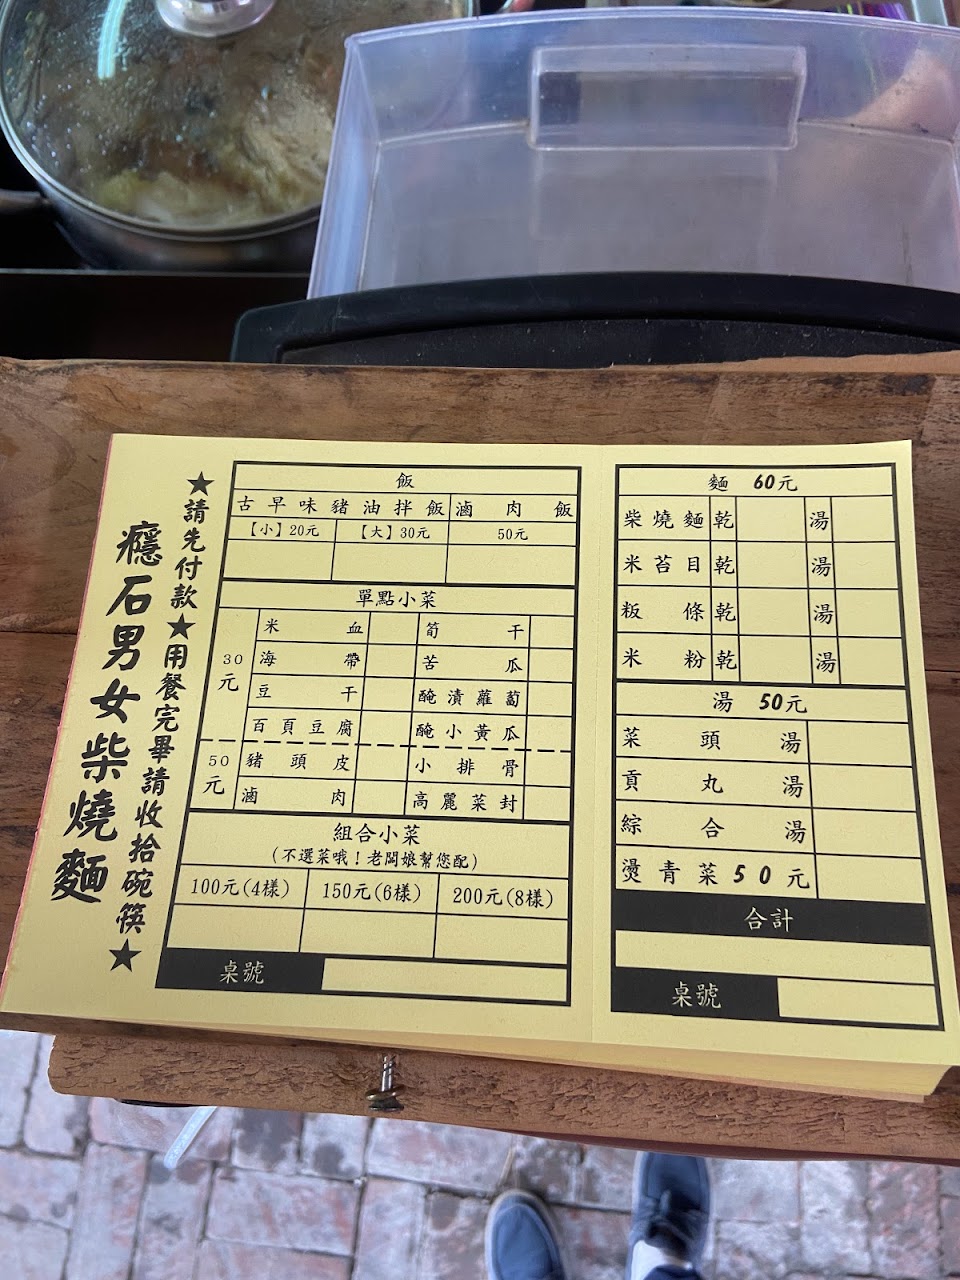 癮石男女柴燒麵
★請先付款★用餐完畢請收拾碗筷★
飯
古早味豬油拌飯 滷肉飯
【小】20元 【大】30元 50元
單點小菜
30元
米血 筍干
海帶 苦瓜
豆干 醃漬蘿蔔
百頁豆腐 醃小黃瓜
50元
豬頭皮 小排骨
滷肉 高麗菜封
組合小菜
(不選菜哦!老闆娘幫您配)
100元(4樣) 150元(6樣) 200元(8樣)
桌號
麵 60元
柴燒麵 乾 湯
米苔目 乾 湯
粄條 乾 湯
米粉 乾 湯
湯 50元
菜頭湯
貢丸湯
綜合湯
燙青菜50元
合計
桌號